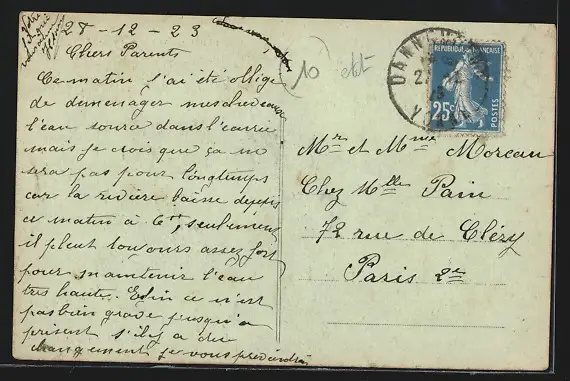 27-12-23
Chers Parents
Ce matin j'ai été obligé
de deménager mes chevaux
l'eau source dans l'écurie
mais je crois que ça ne
sera pas pour longtemps
car la rivière baisse depuis
ce matin à 6 h, seulement
il pleut toujours assez fort
pour maintenir l'eau
très haute. Enfin ce n'est
pas bien grave jusqu'à
présent s'il y a du
changement je vous préviendrai
Votre
fils qui
vous
(10 ett
REPUBLIQUE FRANÇAISE
25c
POSTES
DANN
YONNE
Mr et Mme Moreau
Chez Mlle Pain
72 rue de Cléry
Paris 2e